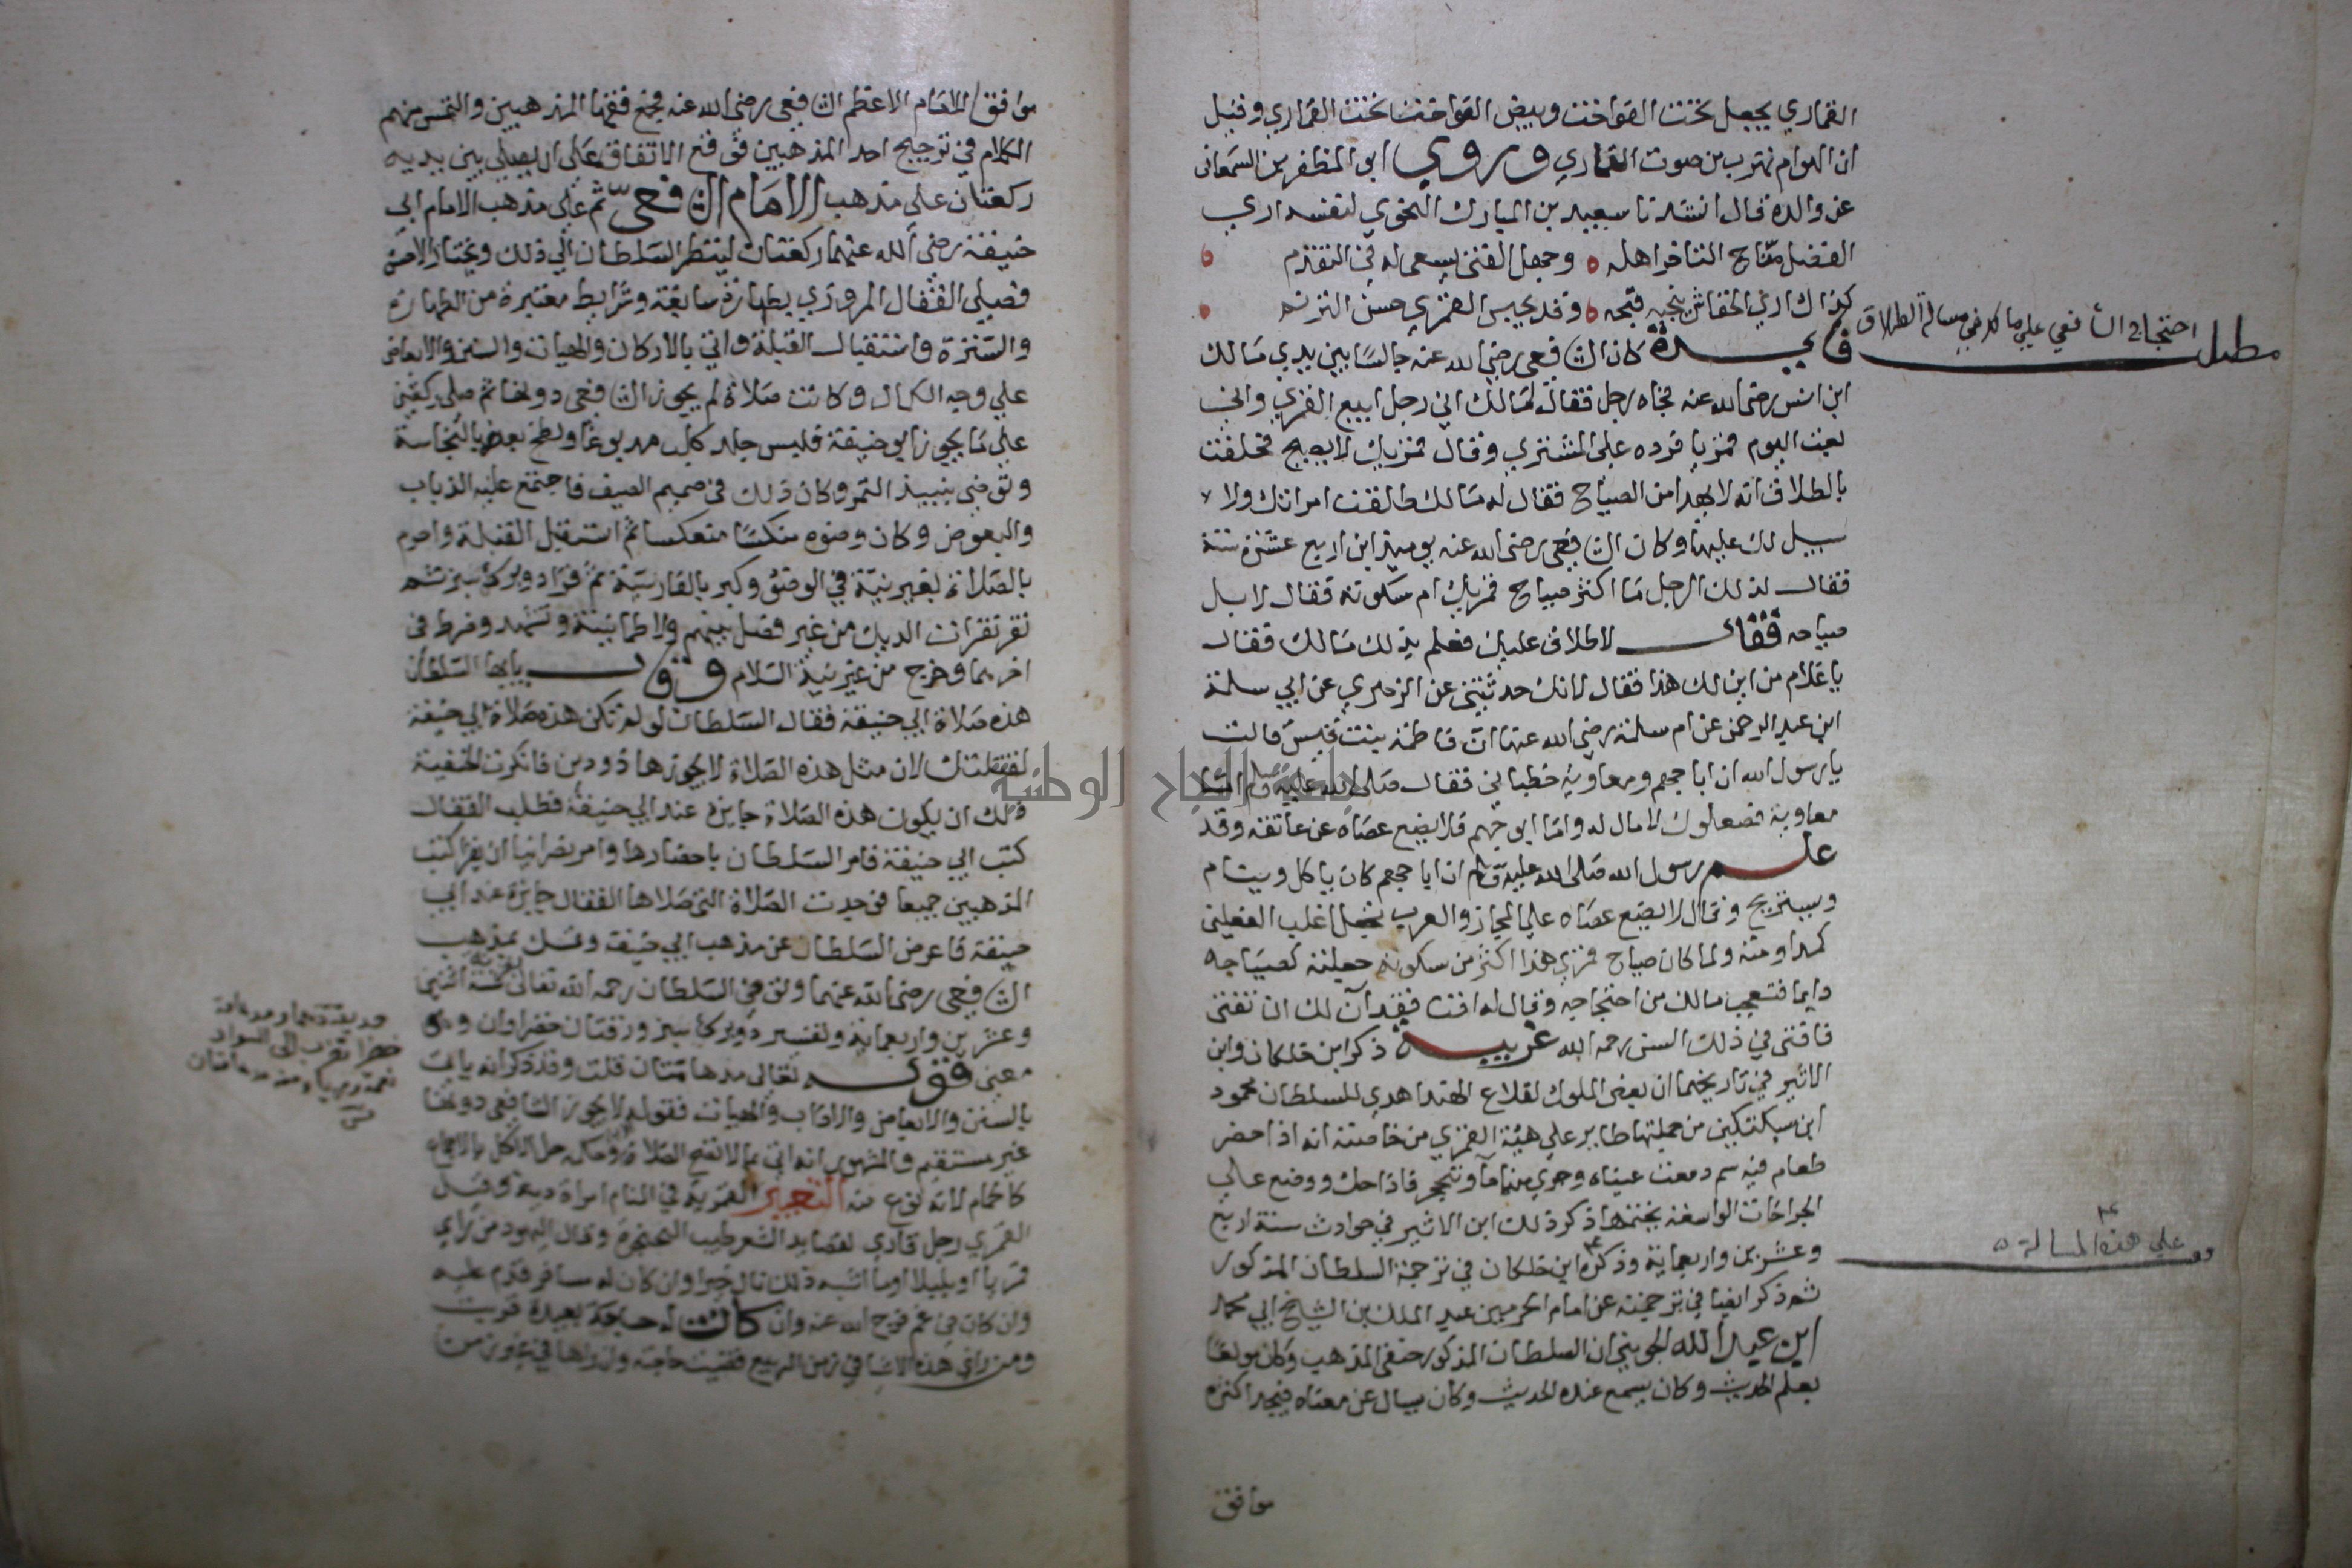 القماري يجعل تحت الفواخت وبيض الفواخت تحت القماري وقيل
ان الهوام تهرب من صوت القماري وروي ابو المظفر بن السمعاني
عن والده قال انشدنا سعيد بن المبارك النحوي لنفسه اري
الفضل مناح التاخر اهله وجهل الفتي يسعي له في التقدم
كذاك اري الخفاش ينجيه قبحه وقد يحبس القمري حسن الترنم
فايدة كان الشافعي رضي الله عنه جالسا بين يدي مالك
ابن انس رضي الله عنه فجاه رجل فقال لمالك اني رجل ابيع القمري واني
بعت اليوم قمريا فرده علي المشتري وقال قمريك لا يصيح فحلفت
بالطلاق انه لا يهدا من الصياح فقال له مالك طالقت امراتك ولا
سبيل لك عليها وكان الشافعي رضي الله عنه يوميذ ابن اربع عشرة سنة
فقال لذلك الرجل ما اكثر صياح قمريك ام سكوته فقال لا بل
صياحه فقال لا طلاق عليك فعلم بذلك مالك فقال
يا غلام من اين لك هذا فقال لانك حدثتني عن الزهري عن ابي سلمة
ابن عبد الرحمن عن ام سلمة رضي الله عنها ان فاطمة بنت قيس قالت
يا رسول الله ان ابا جهم ومعاوية خطباني فقال صلي الله عليه وسلم اما
معاوية فصعلوك لا مال له واما ابو جهم فلا يضع عصاه عن عاتقه وقد
علم رسول الله صلى الله عليه وسلم ان ابا جهم كان ياكل وينام
ويستريح وقال لا يضع عصاه علي المجاز والعرب تجعل اغلب الفعلين
كمداومته ولما كان صياح قمري هذا اكثر من سكوته جعلته كصياحه
دايما فتعجب مالك من احتجاجه وقال له افت فقد آن لك ان تفتي
فافتي في ذلك السن رحمه الله غريبة ذكر ابن خلكان وابن
الاثير في تاريخهما ان بعض الملوك لقلاع الهند اهدي للسلطان محمود
ابن سبكتكين من جملتها طاير علي هيئة القمري من خاصته انه اذا حضر
طعام فيه سم دمعت عيناه وجري منهما ماء وتحجر فاذا حك ووضع علي
الجراحات الواسعة يختمها ذكر ذلك ابن الاثير في حوادث سنة اربع
وعشرين واربعماية وذكره ابن خلكان في ترجمة السلطان المذكور
ثم ذكر ايضا في ترجمته عن امام الحرمين عبد الملك بن الشيخ ابي محمد
ابن عبد الله الجويني ان السلطان المذكور حنفي المذهب وكان مولعا
بعلم الحديث وكان يسمع عنده الحديث وكان يسال عن معناه فيجد اكثره
موافق
مطلب احتجاج الشافعي علي مالك في مسالة الطلاق
علي هذه المسالة
موافقا للامام الاعظم الشافعي رضي الله عنه فجمع فقها المذهبين والتمس منهم
الكلام في ترجيح احد المذهبين فوقع الاتفاق علي ان يصلي بين يديه
ركعتان علي مذهب الامام الشافعي ثم علي مذهب الامام ابي
حنيفة رضي الله عنهما ركعتان لينظر السلطان الي ذلك ويختار الاحسن
فصلي القفال المروزي بطهارة سابغة وشرايط معتبرة من الطهارة
والسترة واستقبال القبلة واتي بالاركان والهيات والسنن والابعاض
علي وجه الكمال وكانت صلاة لم يجوز الشافعي دونها ثم صلي ركعتين
علي ما يجوز ابو حنيفة فلبس جلد كلب مدبوغا ولطخ بعضه بالنجاسة
وتوضي بنبيذ التمر وكان ذلك في صميم الصيف فاجتمع عليه الذباب
والبعوض وكان وضوه منكسا منعكسا ثم استقبل القبلة واحرم
بالصلاة بغير نية في الوضوء وكبر بالفارسية ثم قرا دو برك سبز ثم
نقر نقرات الديك من غير فصل بينهم ولا طمانينة وتشهد وضرط في
اخرهما وخرج من غير نية السلام وقال يا ايها السلطان
هذه صلاة ابي حنيفة فقال السلطان لو لم تكن هذه صلاة ابي حنيفة
لقتلتك لان مثل هذه الصلاة لا يجوزها ذو دين فانكرت الحنفية
ذلك ان يكون هذه الصلاة جايزة عند ابي حنيفة فطلب القفال
كتب ابي حنيفة فامر السلطان باحضارها وامر نصرانيا ان يقرا كتب
المذهبين جميعا فوجدت الصلاة التي صلاها القفال جايزة عند ابي
حنيفة فاعرض السلطان عن مذهب ابي حنيفة وتمسك بمذهب
الشافعي رضي الله عنهما وتوفي السلطان رحمه الله تعالي سنة اثنين
وعشرين واربعماية وتفسير دو برك سبز ورقتان خضراوان وهو
معني قوله تعالي مدهامتان قلت وقد ذكر انه ياتي
بالسنن والابعاض والاداب والهيات فقوله لا يجوز الشافعي دونها
غير مستقيم والمشهور انه اتي بما لا تصح الصلاة
كالحمام لانه نوع منه التعبير القمرية في المنام امراة دينة وقيل
القمري رجل قاري لقصايد الشعر طيب الحنجرة وقال اليهود من راي
قمريا او بلبلا او ما اشبه ذلك نال خيرا وان كان له مسافر قدم عليه
وان كان في غم فرج الله عنه وان كانت له حاجة بعيدة قربت
ومن راي هذه الاشيا في زمن الربيع قضيت حاجته
جامعة النجاح الوطنية